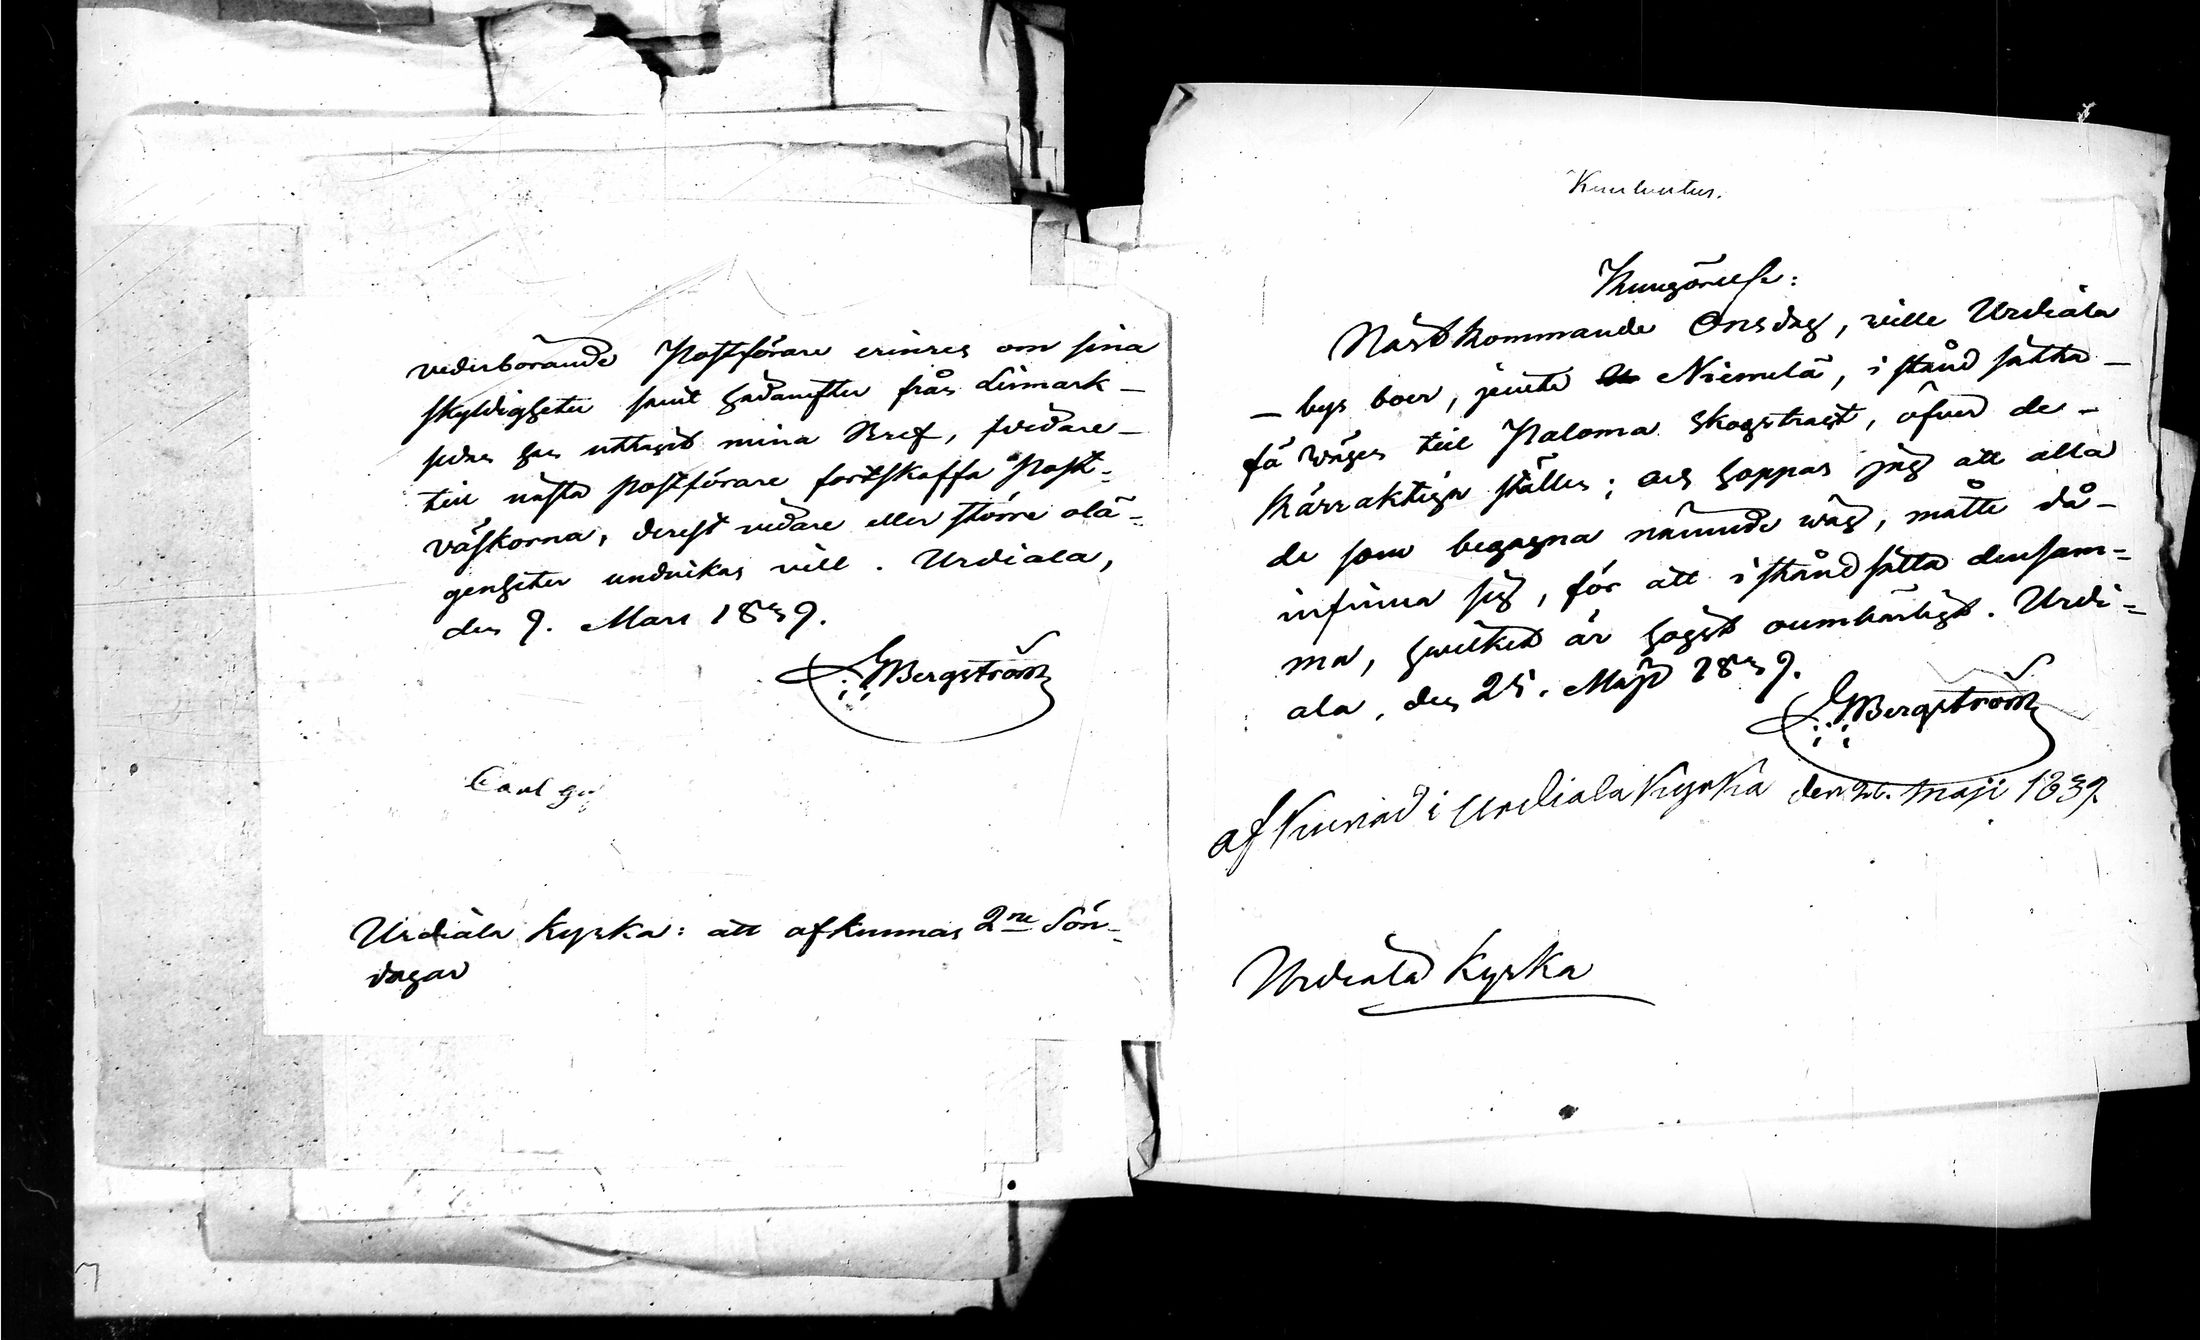 vederbörande Postförare erinras om sina
skyldigheter samt hädanefter från Lismark-
sedan han uttagit mina Bref, vidare
till nästa postförare fortskaffa Post-
väskorna, derest vidare eller större olä-
genheter undvikas vill. Urdiala,
den 9. Mars 1839.
Bergström
Carl
Urdiala Kyrka: att afkunnas 2ne Sön-
dagar
Kuulutus.
Kungörelse:
Nästkommande Onsdag, wille Urdiala
-bys boer, jemte Niemelä, i stånd sätta
få wägen till Paloma skogstrackt, öfver de-
kärraktiga ställen; och hoppas jag att alla
de som begagna nämnde wäg, måtte då-
infinna sig, för att i stånd sätta densam-
ma, hwilket är högst oumbärligt. Urdi-
ala, den 25. Maji 1839.
Bergström
afkunnad i Urdiala Kyrka den 26. Maji 1839.
Urdiala Kyrka